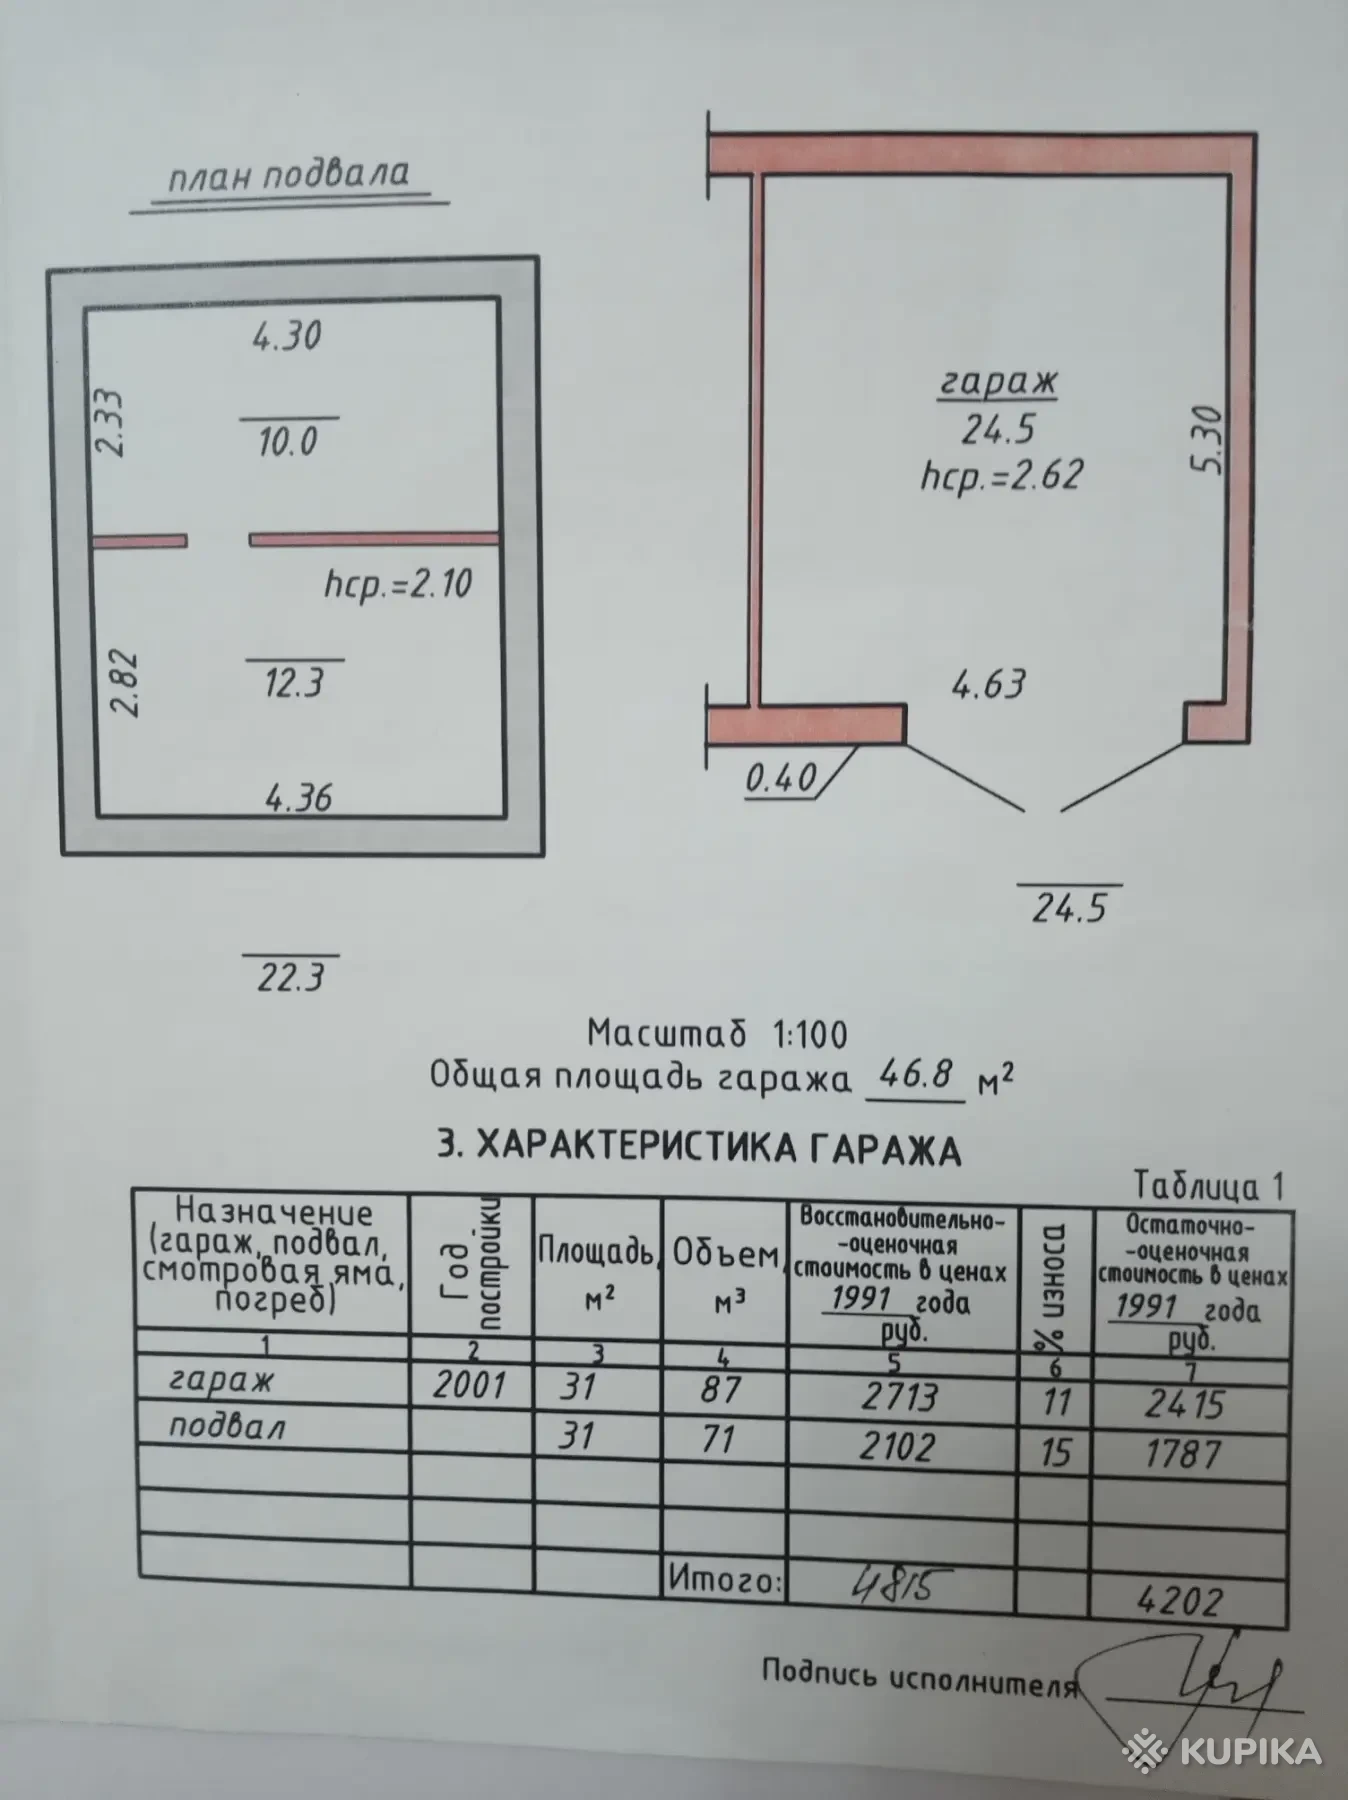 план подвала
4.30
2.33
10.0
hср.=2.10
2.82
12.3
4.36
22.3
гараж
24.5
hср.=2.62
5.30
4.63
0.40
24.5
Масштаб 1:100
Общая площадь гаража 46.8 м²
3. ХАРАКТЕРИСТИКА ГАРАЖА
Таблица 1
Назначение
(гараж, подвал,
смотровая яма,
погреб)
Год
постройки
Площадь,
м²
Объем,
м³
Восстановительно-
-оценочная
стоимость в ценах
1991 года
руб.
% износа
Остаточно-
-оценочная
стоимость в ценах
1991 года
руб.
1 2 3 4 5 6 7
гараж 2001 31 87 2713 11 2415
подвал 31 71 2102 15 1787
Итого: 4815 4202
Подпись исполнителя
KUPIKA